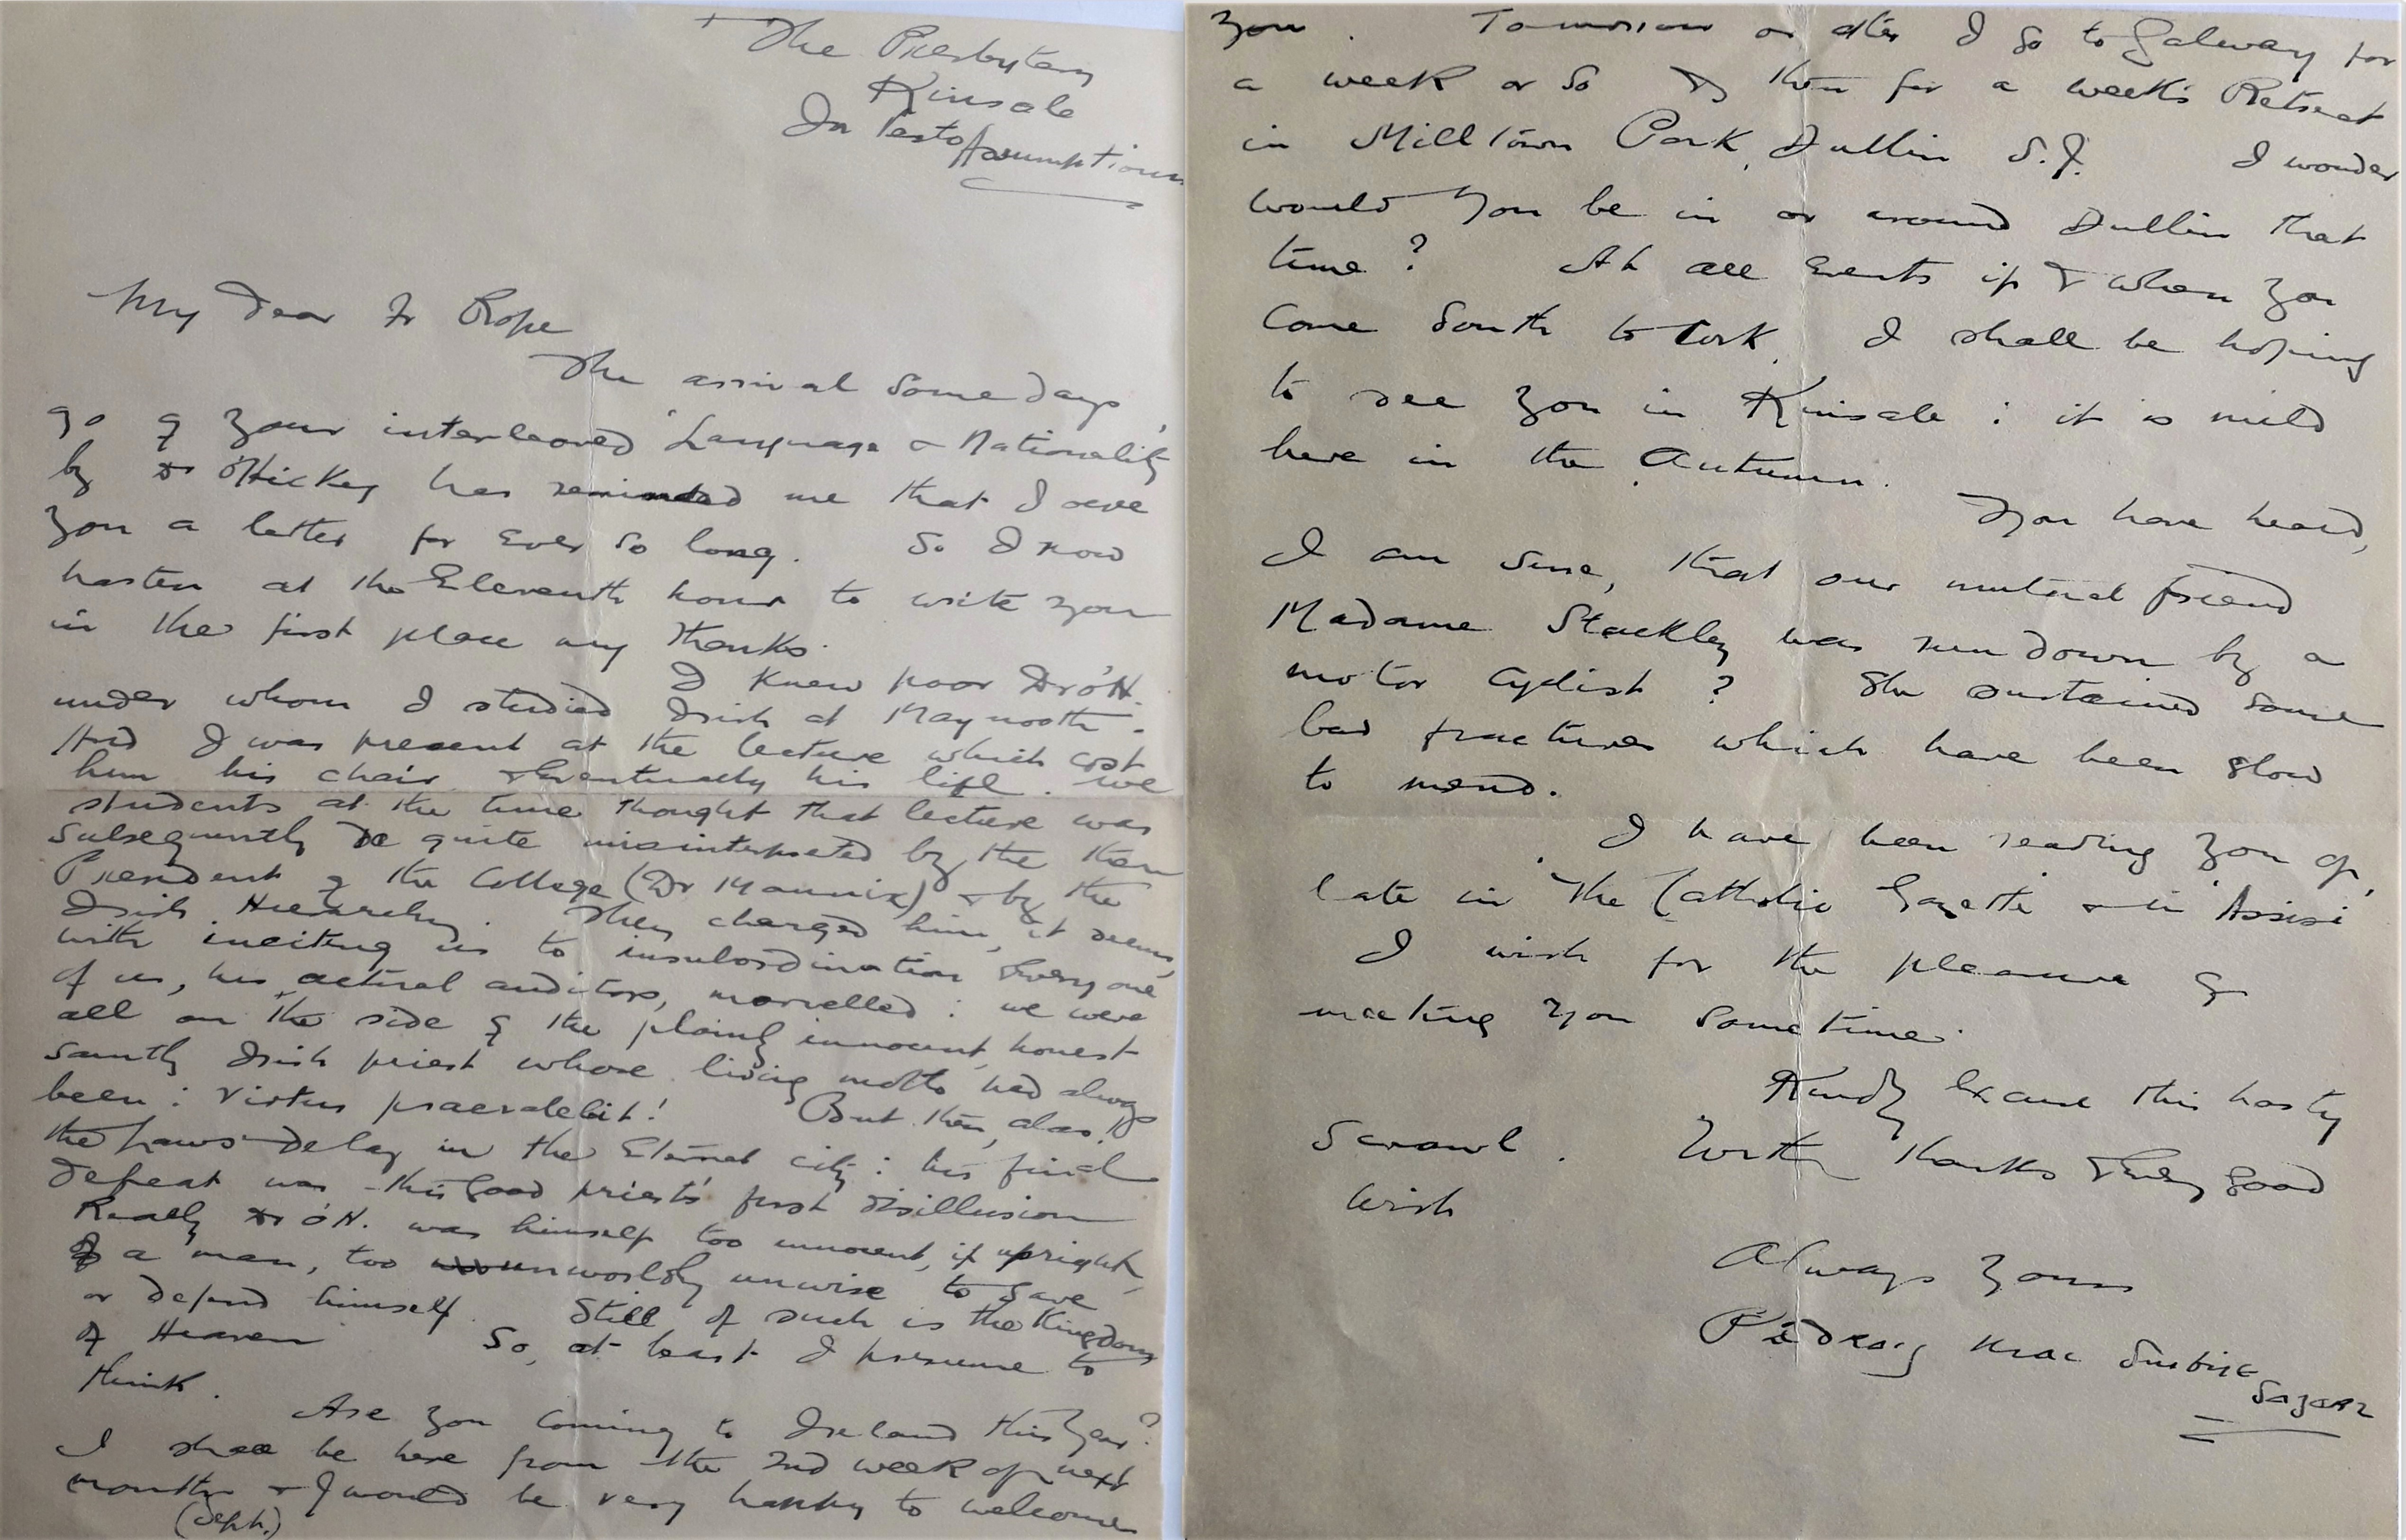 + The Presbytery
Kinsale
In Festo Assumptionis
My dear Fr Rope
The arrival some days
ago of your interleaved 'Language & Nationality'
by Dr O'Hickey has reminded me that I owe
you a letter for ever so long. So I now
hasten at the Eleventh hour to write you
in the first place my thanks.
I knew poor Dr O'H.
under whom I studied Irish at Maynooth.
And I was present at the lecture which cost
him his chair & eventually his life. We
students at the time thought that lecture was
subsequently quite misinterpreted by the then
President of the College (Dr Mannix) & by the
Irish Hierarchy. They charged him, it seems,
with inciting us to insubordination. Every one
of us, his actual auditors, marvelled: we were
all on the side of the plainly innocent, honest
saintly Irish priest whose living motto had always
been: Virtus praevalebit! But then, alas!
the Laws-Delay in the Eternal city: his final
defeat was this good priest's first disillusion
Really Dr O'H. was himself too innocent, if upright,
a man, too unworldly unwise to save
or defend himself. Still of such is the Kingdom
of Heaven. So, at least I presume to
think.
Are you coming to Ireland this year?
I shall be here from the 2nd week of next
month & I would be very happy to welcome
(Sept.)
you. Tomorrow or after I go to Galway for
a week or so & then for a week's Retreat
in Milltown Park, Dublin S.J. I wonder
would you be in or around Dublin that
time? At all events if & when you
come South to Cork, I shall be hoping
to see you in Kinsale: it is mild
here in the Autumn.
You have heard,
I am sure, that our mutual friend
Madame Stackley was run down by a
motor cyclist? She sustained some
bad fractures which have been slow
to mend.
I have been reading you of
late in 'The Catholic Gazette' & in 'Assisi'
I wish for the pleasure of
meeting you sometime.
Kindly excuse this hasty
scrawl. With thanks & every good
wish
Always yours
Pádraig Mac Suibhne
Sagart